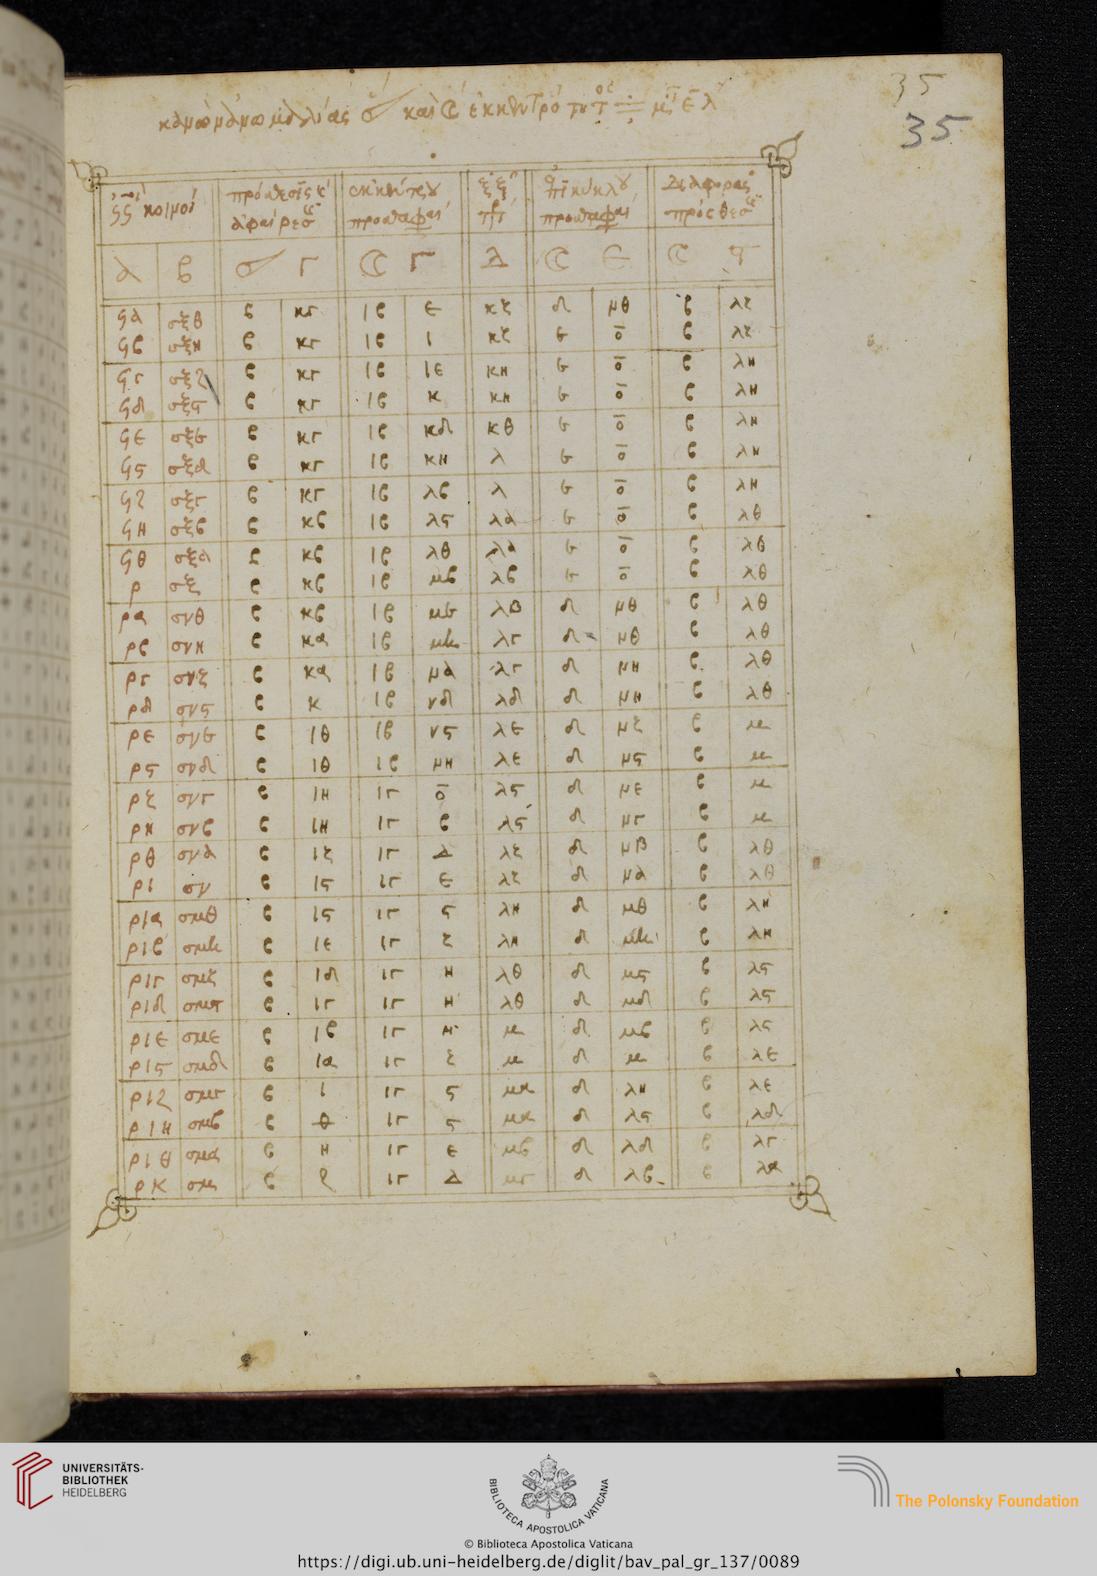 35
35
κοινοί
α β γ γ λ ε
ϟα σξθ β κγ ιβ ε κζ δ μθ β λζ
ϟβ σξη β κγ ιβ ι κζ ε ο β λζ
ϟγ σξζ β κγ ιβ ιε κη ε ο β λη
ϟδ σξς β κγ ιβ κ κη ε ο β λη
ϟε σξε β κγ ιβ κδ κθ ε ο β λη
ϟς σξδ β κγ ιβ κη λ ε ο β λη
ϟζ σξγ β κγ ιβ λβ λ ε ο β λη
ϟη σξβ β κβ ιβ λς λα ε ο β λθ
ϟθ σξα β κβ ιβ λθ λα ε ο β λθ
ρ σξ β κβ ιβ μβ λβ ε ο β λθ
ρα σνθ β κβ ιβ με λβ δ μθ β λθ
ρβ σνη β κα ιβ μη λγ δ μθ β λθ
ργ σνζ β κα ιβ να λγ δ μη β λθ
ρδ σνς β κ ιβ νδ λδ δ μη β λθ
ρε σνε β ιθ ιβ νς λε δ μζ β μ
ρς σνδ β ιθ ιβ μη λε δ μς β μ
ρζ σνγ β ιη ιγ ο λς δ με β μ
ρη σνβ β ιη ιγ β λς δ μγ β μ
ρθ σνα β ιζ ιγ δ λζ δ μβ β λθ
ρι σν β ις ιγ ε λζ δ μα β λθ
ρια σμθ β ις ιγ ς λη δ μθ β λη
ριβ σμη β ιε ιγ ζ λη δ μη β λη
ριγ σμζ β ιδ ιγ η λθ δ μς β λς
ριδ σμς β ιγ ιγ η λθ δ μδ β λς
ριε σμε β ιβ ιγ η μ δ μβ β λς
ρις σμδ β ια ιγ ζ μ δ μ β λε
ριζ σμγ β ι ιγ ς μα δ λη β λε
ριη σμβ β θ ιγ ς μα δ λς β λδ
ριθ σμα β η ιγ ε μβ δ λδ β λγ
ρκ σμ β ζ ιγ δ μγ δ λβ β λα
UNIVERSITÄTS-
BIBLIOTHEK
HEIDELBERG
BIBLIOTECA APOSTOLICA VATICANA
The Polonsky Foundation
© Biblioteca Apostolica Vaticana
https://digi.ub.uni-heidelberg.de/diglit/bav_pal_gr_137/0089